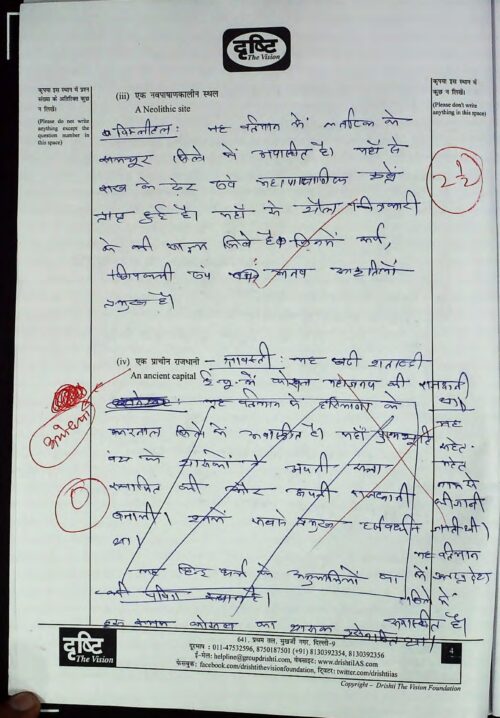 दृष्टि
The Vision
कृपया इस स्थान में प्रश्न
संख्या के अतिरिक्त कुछ
न लिखें।
(Please do not write
anything except the
question number in
this space)
कृपया इस स्थान में
कुछ न लिखें।
(Please don't write
anything in this space)
(iii) एक नवपाषाणकालीन स्थल
A Neolithic site
यह वर्तमान में कर्नाटक के
जिले में अवस्थित है। यहाँ से
राख के ढेर एवं महापाषाणिक
प्राप्त हुई है। यहाँ से शैल चित्रकारी
के भी मिले हैं जिनमें सर्प,
छिपकली एवं मानव आकृतियाँ
प्रमुख हैं।
2½
(iv) एक प्राचीन राजधानी - श्रावस्ती : यह छठी शताब्दी
An ancient capital ई.पू. में कोसल महाजनपद की राजधानी
था।
यह वर्तमान के हरियाणा के
करनाल जिले में अवस्थित है। यहाँ पुष्यभूति
वंश के शासकों ने अपनी सत्ता
स्थापित की और अपनी राजधानी
बनाली। इनमें सबसे प्रमुख हर्षवर्धन
था।
यह
सहेत-
महेत
नाम से
भी जानी
जाती थी।
यह वर्तमान
में उत्तर प्रदेश
में
अवस्थित है।
यह हिन्दू धर्म के अनुयायियों का
भी पवित्र स्थान है।
इस समय कोसल का शासक प्रसेनजित था।
अयोध्या
0
641, प्रथम तल, मुखर्जी नगर, दिल्ली-9
दूरभाष : 011-47532596, 8750187501 (+91) 8130392354, 8130392356
ई-मेल: helpline@groupdrishti.com, वेबसाइट: www.drishtiIAS.com
फेसबुक: facebook.com/drishtithevisionfoundation, ट्विटर: twitter.com/drishtiias
दृष्टि
The Vision
4
Copyright – Drishti The Vision Foundation